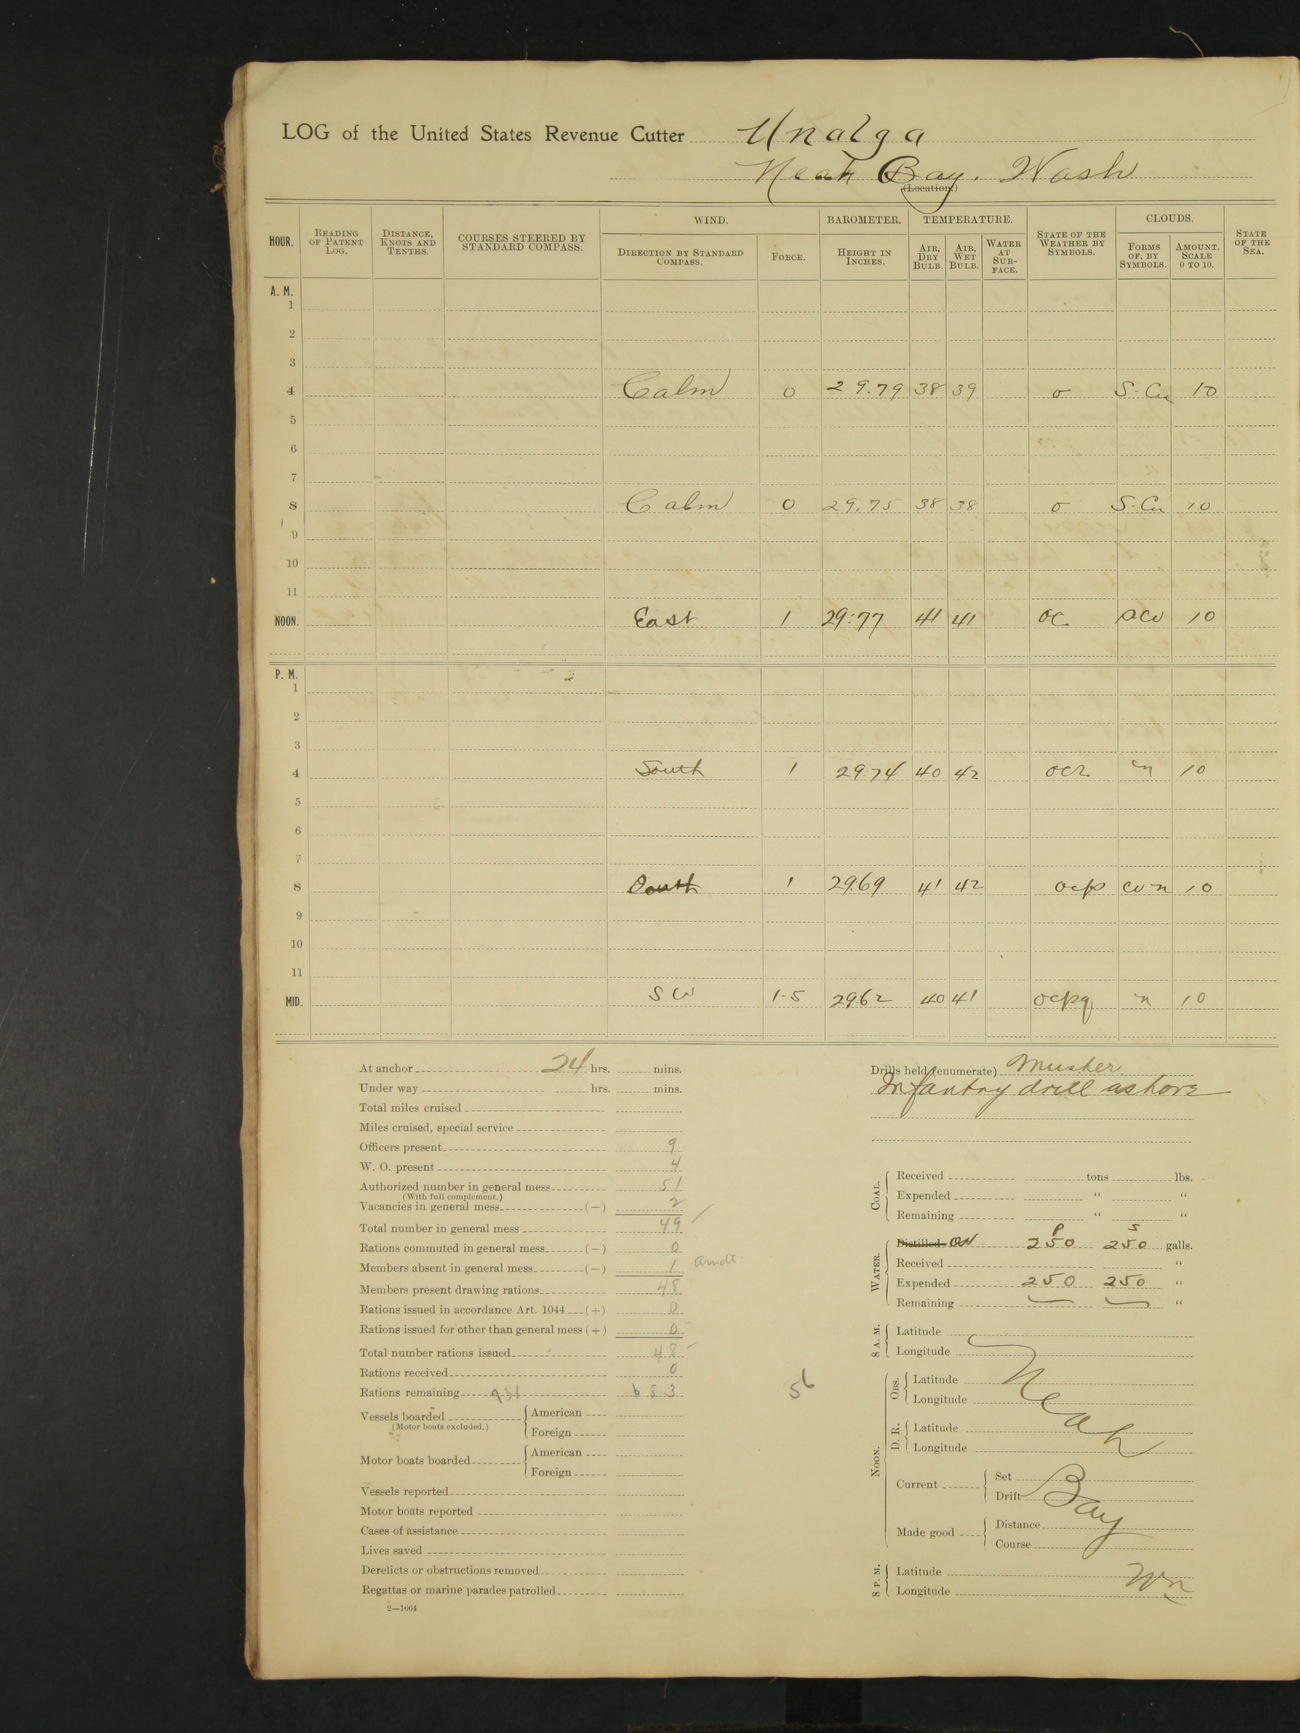 LOG of the United States Revenue Cutter Unalga
Neah Bay. Wash
(Location)
HOUR. READING OF PATENT LOG. DISTANCE, KNOTS AND TENTHS. COURSES STEERED BY STANDARD COMPASS. WIND. BAROMETER. TEMPERATURE. STATE OF THE WEATHER BY SYMBOLS. CLOUDS. STATE OF THE SEA.
DIRECTION BY STANDARD COMPASS. FORCE. HEIGHT IN INCHES. AIR, DRY BULB. AIR, WET BULB. WATER AT SURFACE. FORMS OF, BY SYMBOLS. AMOUNT. SCALE 0 TO 10.
A. M.
1
2
3
4 Calm 0 29.79 38 39 o S-Cu 10
5
6
7
8 Calm 0 29.75 38 38 o S-Cu 10
9
10
11
NOON. East 1 29:77 41 41 oc 10
P. M.
1
2
3
4 South 1 29.74 40 42 ocr n 10
5
6
7
8 South 1 29.69 41 42 ocp cu-n 10
9
10
11
MID. SW 1-5 29.62 40 41 ocpq n 10
At anchor 24 hrs. mins.
Under way hrs. mins.
Total miles cruised
Miles cruised, special service
Officers present 9
W. O. present 4
Authorized number in general mess 51
(With full complement.)
Vacancies in general mess (—) 2
Total number in general mess 49
Rations commuted in general mess (—) 0
Members absent in general mess (—) 1 Arndt
Members present drawing rations 48
Rations issued in accordance Art. 1044 (+) 0
Rations issued for other than general mess (+) 0
Total number rations issued 48
Rations received 0
Rations remaining 731 683
56
Vessels boarded American
(Motor boats excluded.) Foreign
Motor boats boarded American
Foreign
Vessels reported
Motor boats reported
Cases of assistance
Lives saved
Derelicts or obstructions removed
Regattas or marine parades patrolled
2—1664
Drills held (enumerate) Muster.
Infantry drill ashore
COAL.
Received tons lbs.
Expended " "
Remaining " "
P S
WATER.
Distilled OH 250 250 galls.
Received "
Expended 250 250 "
Remaining — — "
8 A. M.
Latitude
Longitude
NOON.
OBS. Latitude
Longitude
D. R. Latitude
Longitude
Neah
Current Set
Drift
Bay
Made good Distance
Course
8 P. M.
Latitude Wn
Longitude